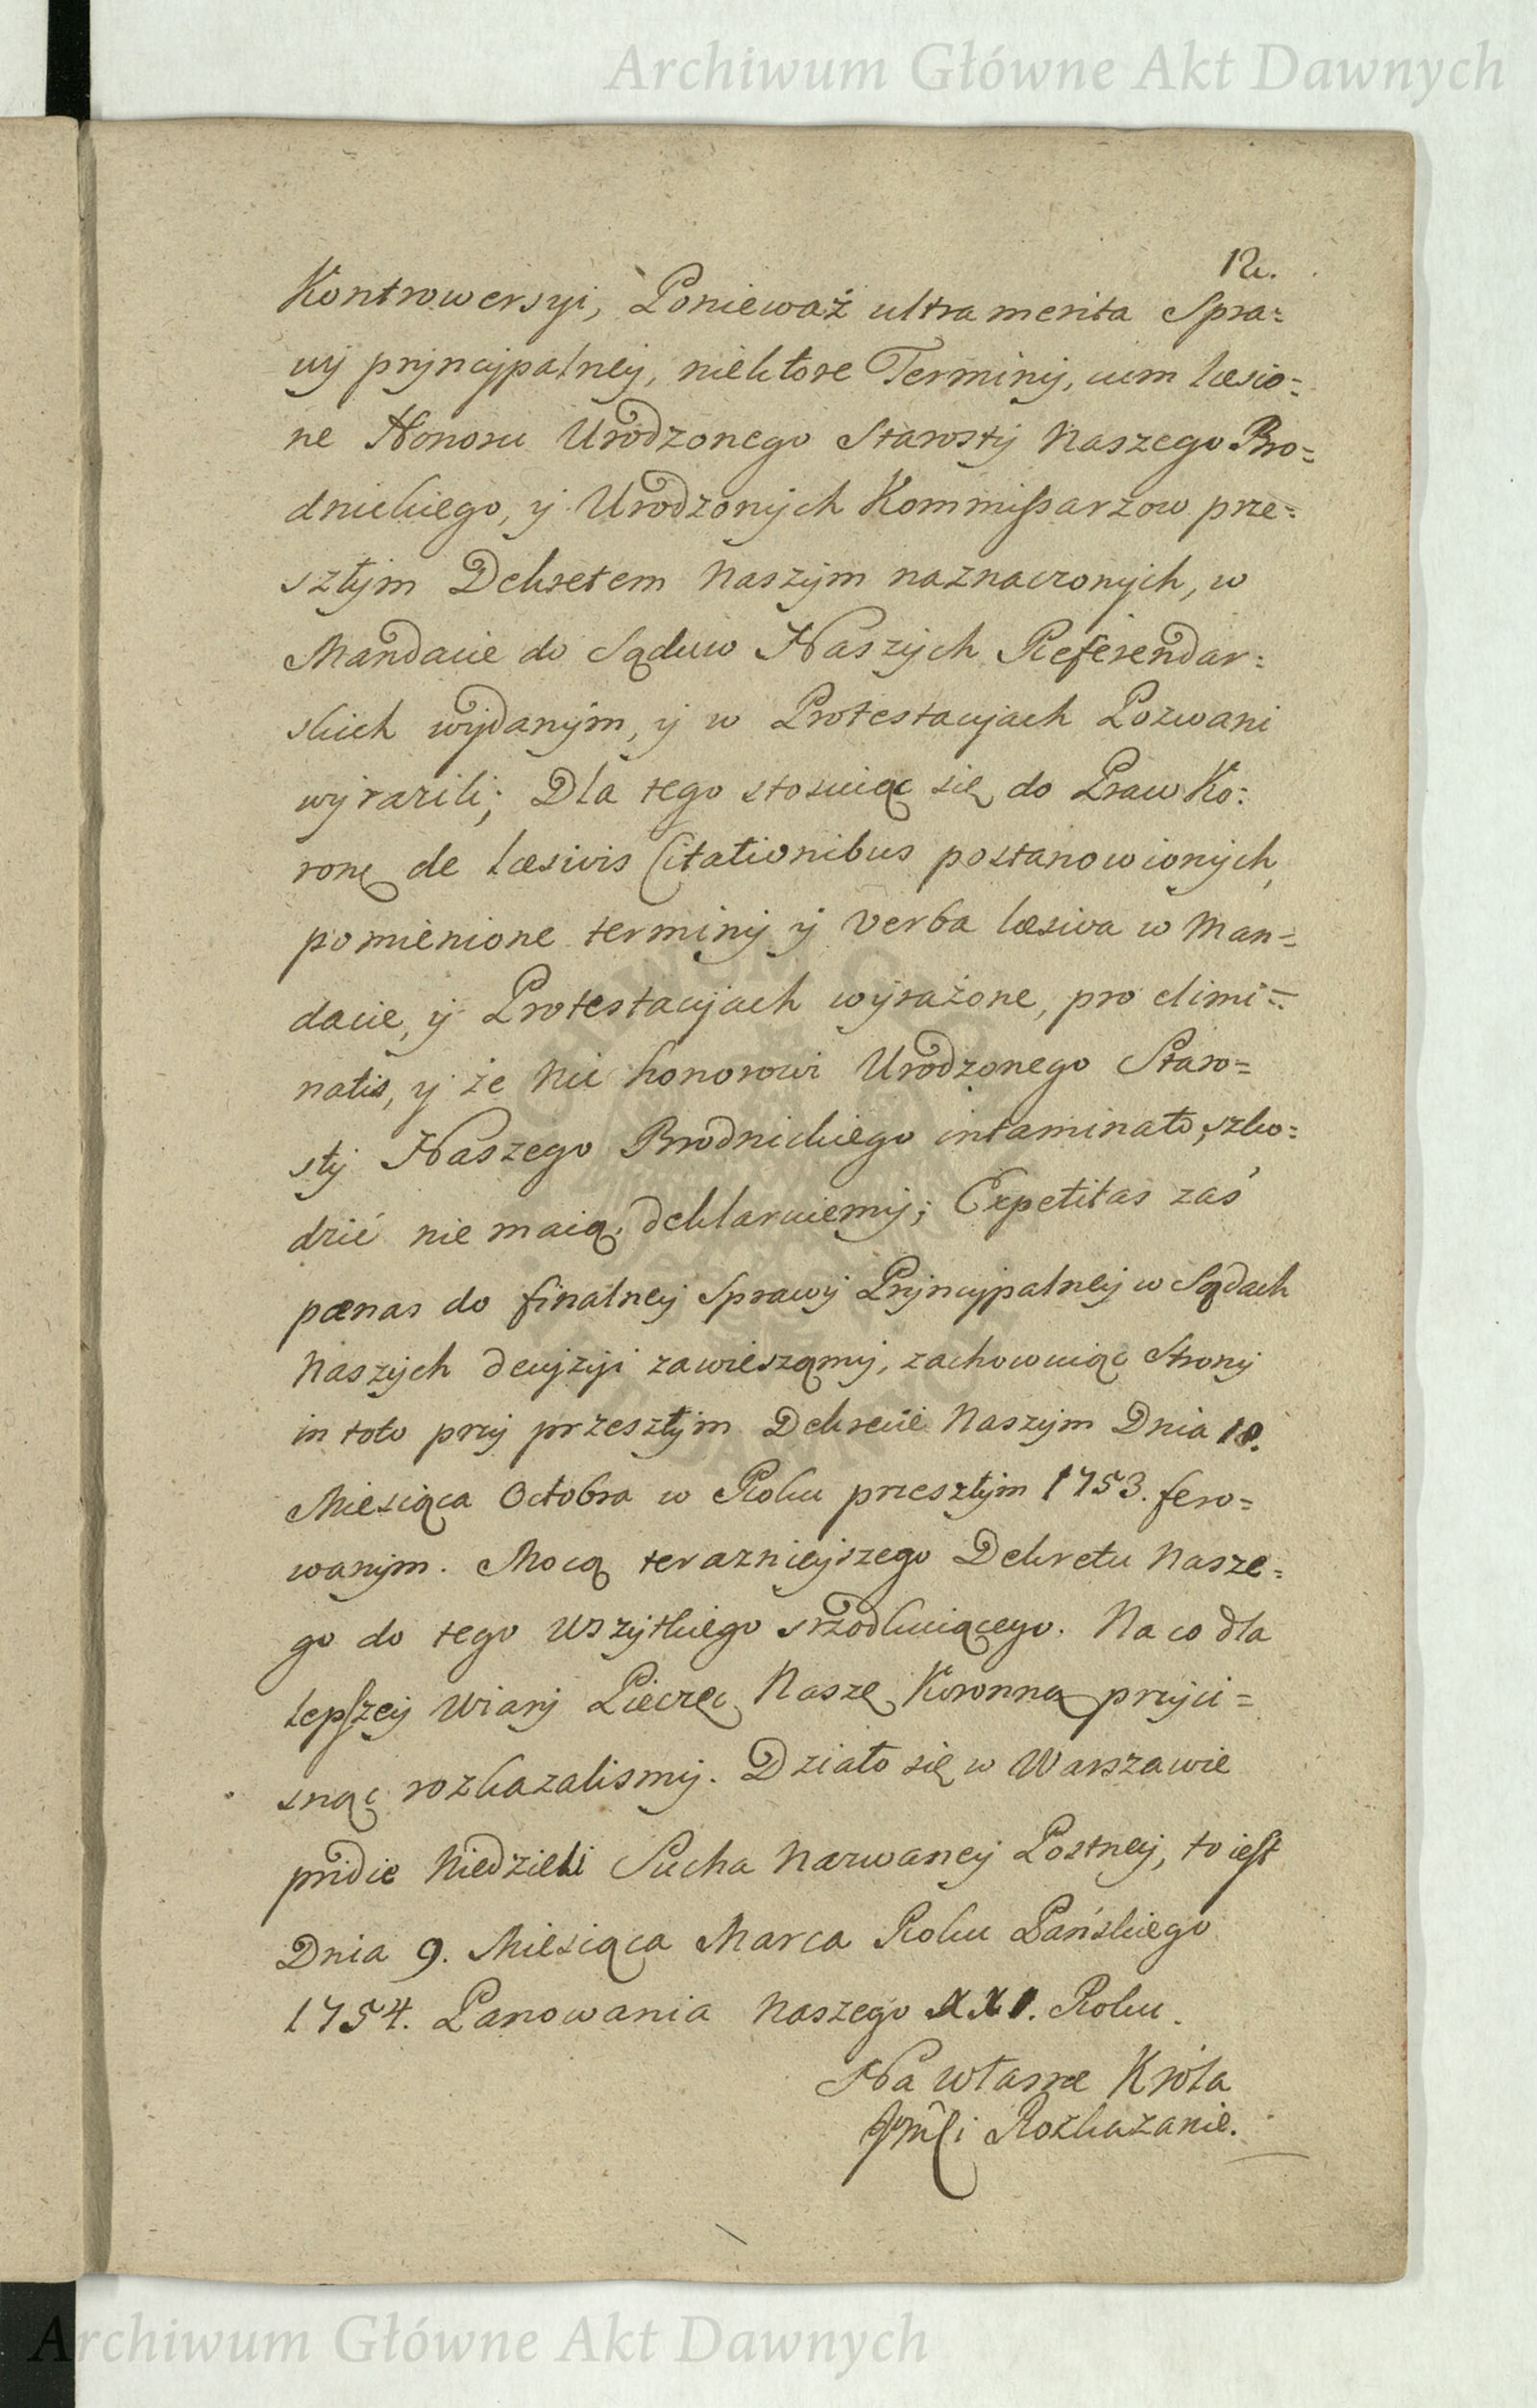 Archiwum Główne Akt Dawnych
12.
Kontrowersyi, Ponieważ ultra merita Spra=
wÿ prÿncÿpalneÿ, niektore Terminÿ, cum læsio=
ne Honoru Urodzonego Starostÿ Naszego Bro=
dnickiego, ÿ Urodzonÿch Kommissarzow prze=
szłÿm Dekretem Naszÿm naznaczonÿch, w
Mandacie do Sąduw Naszÿch Referendar=
skich wÿdanÿm, ÿ w Protestacÿach Pozwani
wÿrazili; Dla tego stosuiąc się do Praw Ko=
ronę de læsivis Citationibus postanowionÿch,
pomienione terminÿ ÿ verba læsiva w Man=
dacie, ÿ Protestacÿach wÿrażone, pro elimi=
natis, ÿ że Nic honorowi Urodzonego Staro=
stÿ Naszego Brodnickiego intaminato, szko=
dzić nie maią, deklaruiemÿ; Expetitas zaś
pænas do finalneÿ Sprawÿ Prÿncÿpalneÿ w Sądach
Naszÿch decÿzÿi zawieszamÿ, zachowuiąc Stronÿ
in toto przÿ przeszłÿm Dekrecie Naszÿm Dnia 18.
Miesiąca Octobra w Roku przeszłÿm 1753. fero=
wanÿm. Mocą teraznieÿszego Dekretu Nasze=
go do tego wszÿtkiego srzodkuiącego. Na co dla
lepszeÿ wiarÿ Pieczęc Naszę Koronną przÿci=
snąc rozkazalismÿ. Działo się w Warszawie
pridie Niedzieli Sucha Nazwaneÿ Postneÿ, to iest
Dnia 9. Miesiąca Marca Roku Pańskiego
1754. Panowania Naszego XXI. Roku.
Na własne Króla
Jmći Rozkazanie.
Archiwum Główne Akt Dawnych